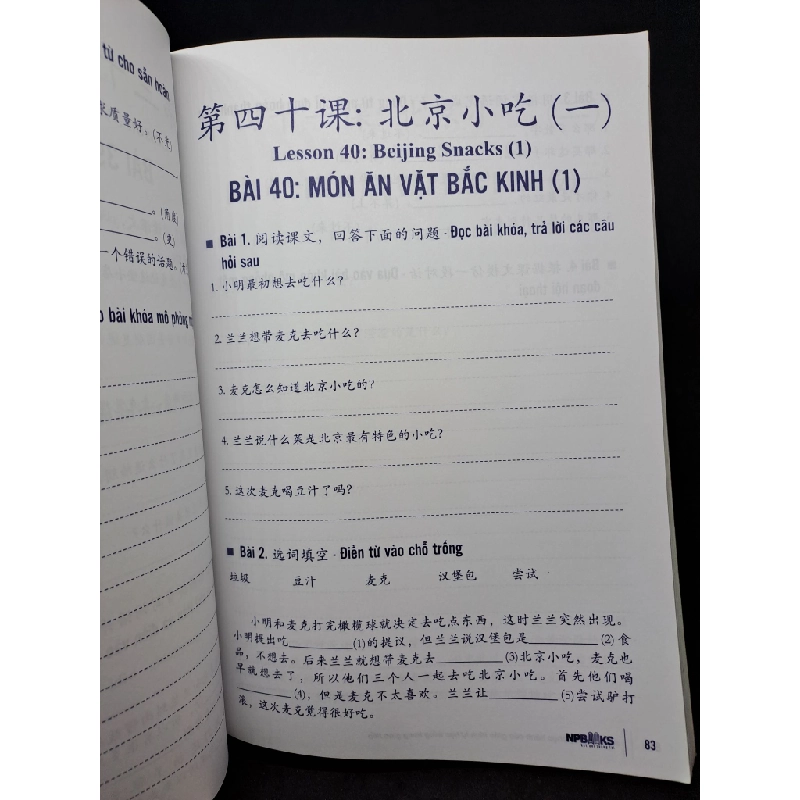 từ cho sẵn hoàn
质量好。(不光)
。(而且)
。(变)
一个错误的话题。
bài khóa mô phỏng
第四十课: 北京小吃 (一)
Lesson 40: Beijing Snacks (1)
BÀI 40: MÓN ĂN VẶT BẮC KINH (1)
Bài 1. 阅读课文，回答下面的问题 - Đọc bài khóa, trả lời các câu
hỏi sau
1. 小明最初想去吃什么?
2. 兰兰想带麦克去吃什么?
3. 麦克怎么知道北京小吃的?
4. 兰兰说什么菜是北京最有特色的小吃?
5. 这次麦克喝豆汁了吗?
Bài 2. 选词填空 - Điền từ vào chỗ trống
垃圾 豆汁 麦克 汉堡包 尝试
小明和麦克打完橄榄球就决定去吃点东西，这时兰兰突然出现。
小明提出吃__________(1)的提议，但兰兰说汉堡包是__________(2) 食
品，不想去。后来兰兰就想带麦克去__________(3)北京小吃，麦克也
早就想去了，所以他们三个人一起去吃北京小吃。首先他们喝
__________(4)，但是麦克不太喜欢。兰兰让__________(5)尝试驴打
滚，这次麦克觉得很好吃。
NPBOOKS
83